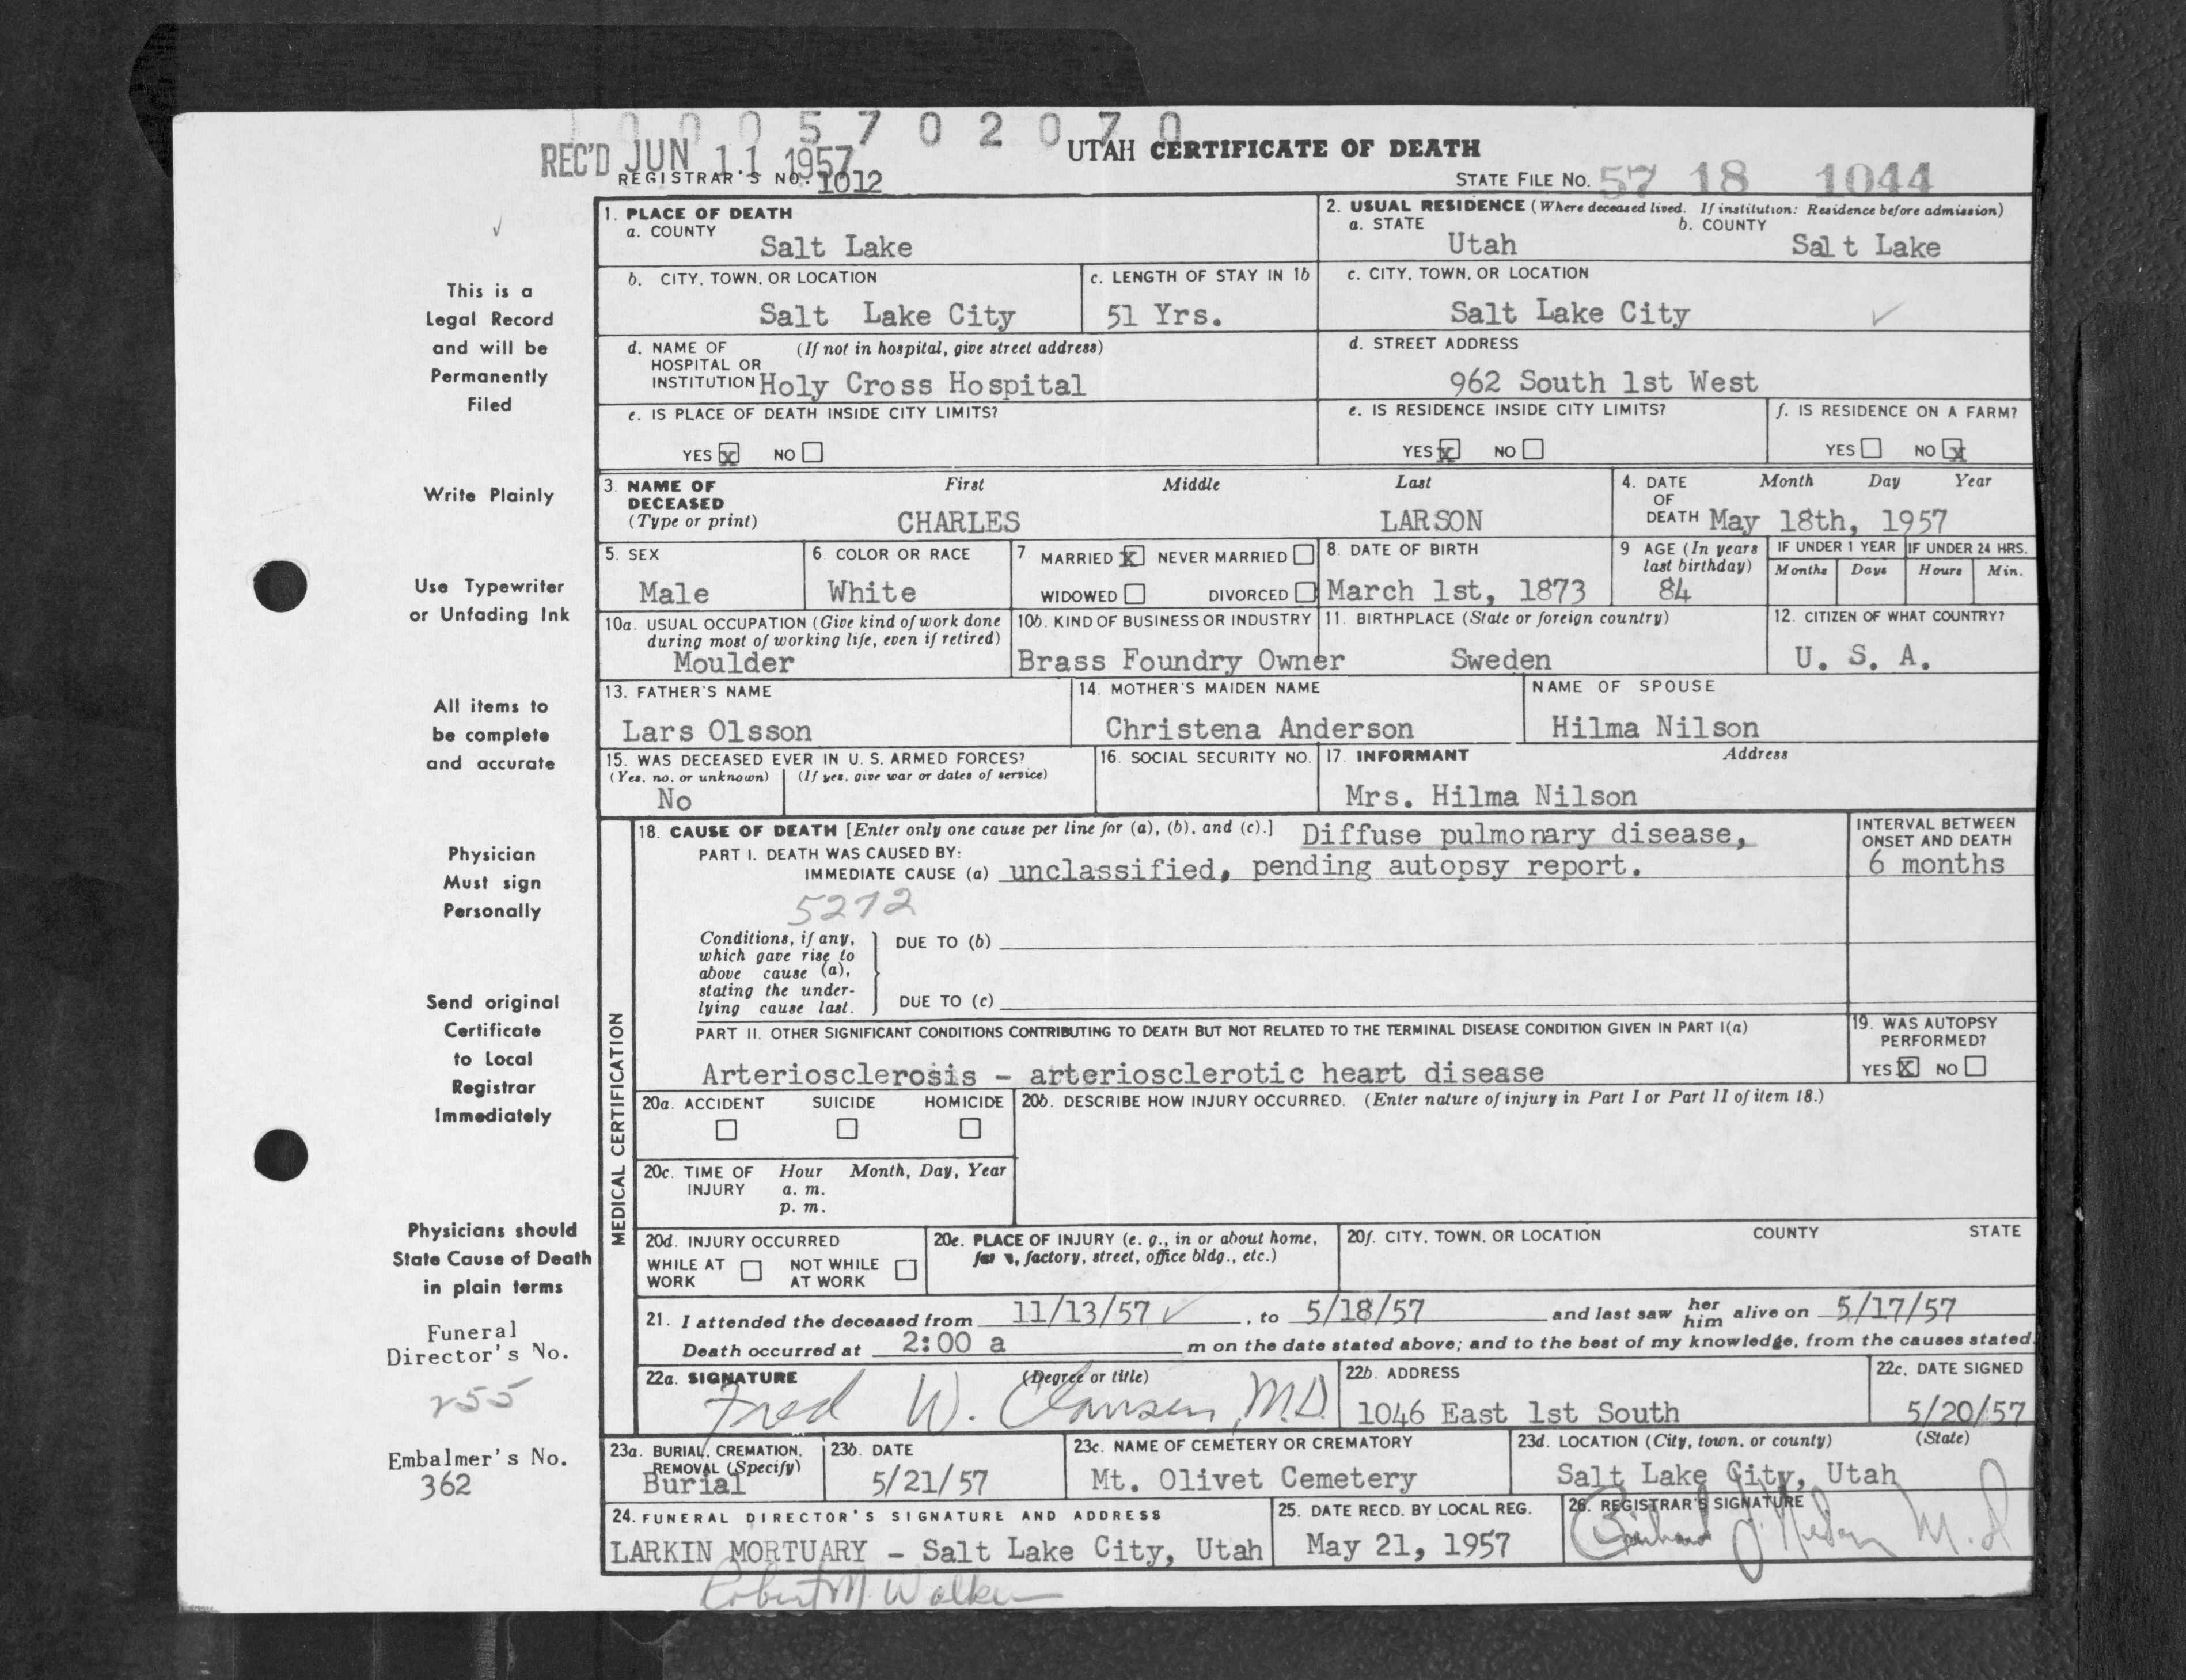 1 0 0 0 5 7 0 2 0 7 0
REC'D JUN 11 1957
UTAH CERTIFICATE OF DEATH
REGISTRAR'S NO. 1012
STATE FILE NO. 57 18 1044
1. PLACE OF DEATH
a. COUNTY
Salt Lake
2. USUAL RESIDENCE (Where deceased lived. If institution: Residence before admission)
a. STATE b. COUNTY
Utah Salt Lake
b. CITY, TOWN, OR LOCATION
Salt Lake City
c. LENGTH OF STAY IN 1b
51 Yrs.
c. CITY, TOWN, OR LOCATION
Salt Lake City
d. NAME OF (If not in hospital, give street address)
HOSPITAL OR
INSTITUTION Holy Cross Hospital
d. STREET ADDRESS
962 South 1st West
e. IS PLACE OF DEATH INSIDE CITY LIMITS?
YES X NO
e. IS RESIDENCE INSIDE CITY LIMITS?
YES X NO
f. IS RESIDENCE ON A FARM?
YES NO X
3. NAME OF First Middle Last
DECEASED
(Type or print) CHARLES LARSON
4. DATE Month Day Year
OF
DEATH May 18th, 1957
5. SEX
Male
6. COLOR OR RACE
White
7. MARRIED X NEVER MARRIED
WIDOWED DIVORCED
8. DATE OF BIRTH
March 1st, 1873
9 AGE (In years
last birthday)
84
IF UNDER 1 YEAR IF UNDER 24 HRS.
Months Days Hours Min.
10a. USUAL OCCUPATION (Give kind of work done
during most of working life, even if retired)
Moulder
10b. KIND OF BUSINESS OR INDUSTRY
Brass Foundry Owner
11. BIRTHPLACE (State or foreign country)
Sweden
12. CITIZEN OF WHAT COUNTRY?
U. S. A.
13. FATHER'S NAME
Lars Olsson
14. MOTHER'S MAIDEN NAME
Christena Anderson
NAME OF SPOUSE
Hilma Nilson
15. WAS DECEASED EVER IN U. S. ARMED FORCES?
(Yes, no, or unknown) (If yes, give war or dates of service)
No
16. SOCIAL SECURITY NO.
17. INFORMANT Address
Mrs. Hilma Nilson
MEDICAL CERTIFICATION
18. CAUSE OF DEATH [Enter only one cause per line for (a), (b), and (c).] Diffuse pulmonary disease,
PART I. DEATH WAS CAUSED BY:
IMMEDIATE CAUSE (a) unclassified, pending autopsy report.
5272
INTERVAL BETWEEN
ONSET AND DEATH
6 months
Conditions, if any,
which gave rise to
above cause (a),
stating the under-
lying cause last.
DUE TO (b)
DUE TO (c)
PART II. OTHER SIGNIFICANT CONDITIONS CONTRIBUTING TO DEATH BUT NOT RELATED TO THE TERMINAL DISEASE CONDITION GIVEN IN PART I(a)
Arteriosclerosis - arteriosclerotic heart disease
19. WAS AUTOPSY
PERFORMED?
YES X NO
20a. ACCIDENT SUICIDE HOMICIDE
20b. DESCRIBE HOW INJURY OCCURRED. (Enter nature of injury in Part I or Part II of item 18.)
20c. TIME OF Hour Month, Day, Year
INJURY a. m.
p. m.
20d. INJURY OCCURRED
WHILE AT NOT WHILE
WORK AT WORK
20e. PLACE OF INJURY (e. g., in or about home,
factory, street, office bldg., etc.)
20f. CITY, TOWN, OR LOCATION COUNTY STATE
21. I attended the deceased from 11/13/57 ✓, to 5/18/57 and last saw her him alive on 5/17/57
Death occurred at 2:00 a m on the date stated above; and to the best of my knowledge, from the causes stated.
22a. SIGNATURE (Degree or title)
Fred W. Clausen, M.D.
22b. ADDRESS
1046 East 1st South
22c. DATE SIGNED
5/20/57
23a. BURIAL, CREMATION,
REMOVAL (Specify)
Burial
23b. DATE
5/21/57
23c. NAME OF CEMETERY OR CREMATORY
Mt. Olivet Cemetery
23d. LOCATION (City, town, or county) (State)
Salt Lake City, Utah
24. FUNERAL DIRECTOR'S SIGNATURE AND ADDRESS
LARKIN MORTUARY - Salt Lake City, Utah
Robert M. Walker
25. DATE RECD. BY LOCAL REG.
May 21, 1957
26. REGISTRAR'S SIGNATURE
M.D
This is a
Legal Record
and will be
Permanently
Filed
Write Plainly
Use Typewriter
or Unfading Ink
All items to
be complete
and accurate
Physician
Must sign
Personally
Send original
Certificate
to Local
Registrar
Immediately
Physicians should
State Cause of Death
in plain terms
Funeral
Director's No.
255
Embalmer's No.
362